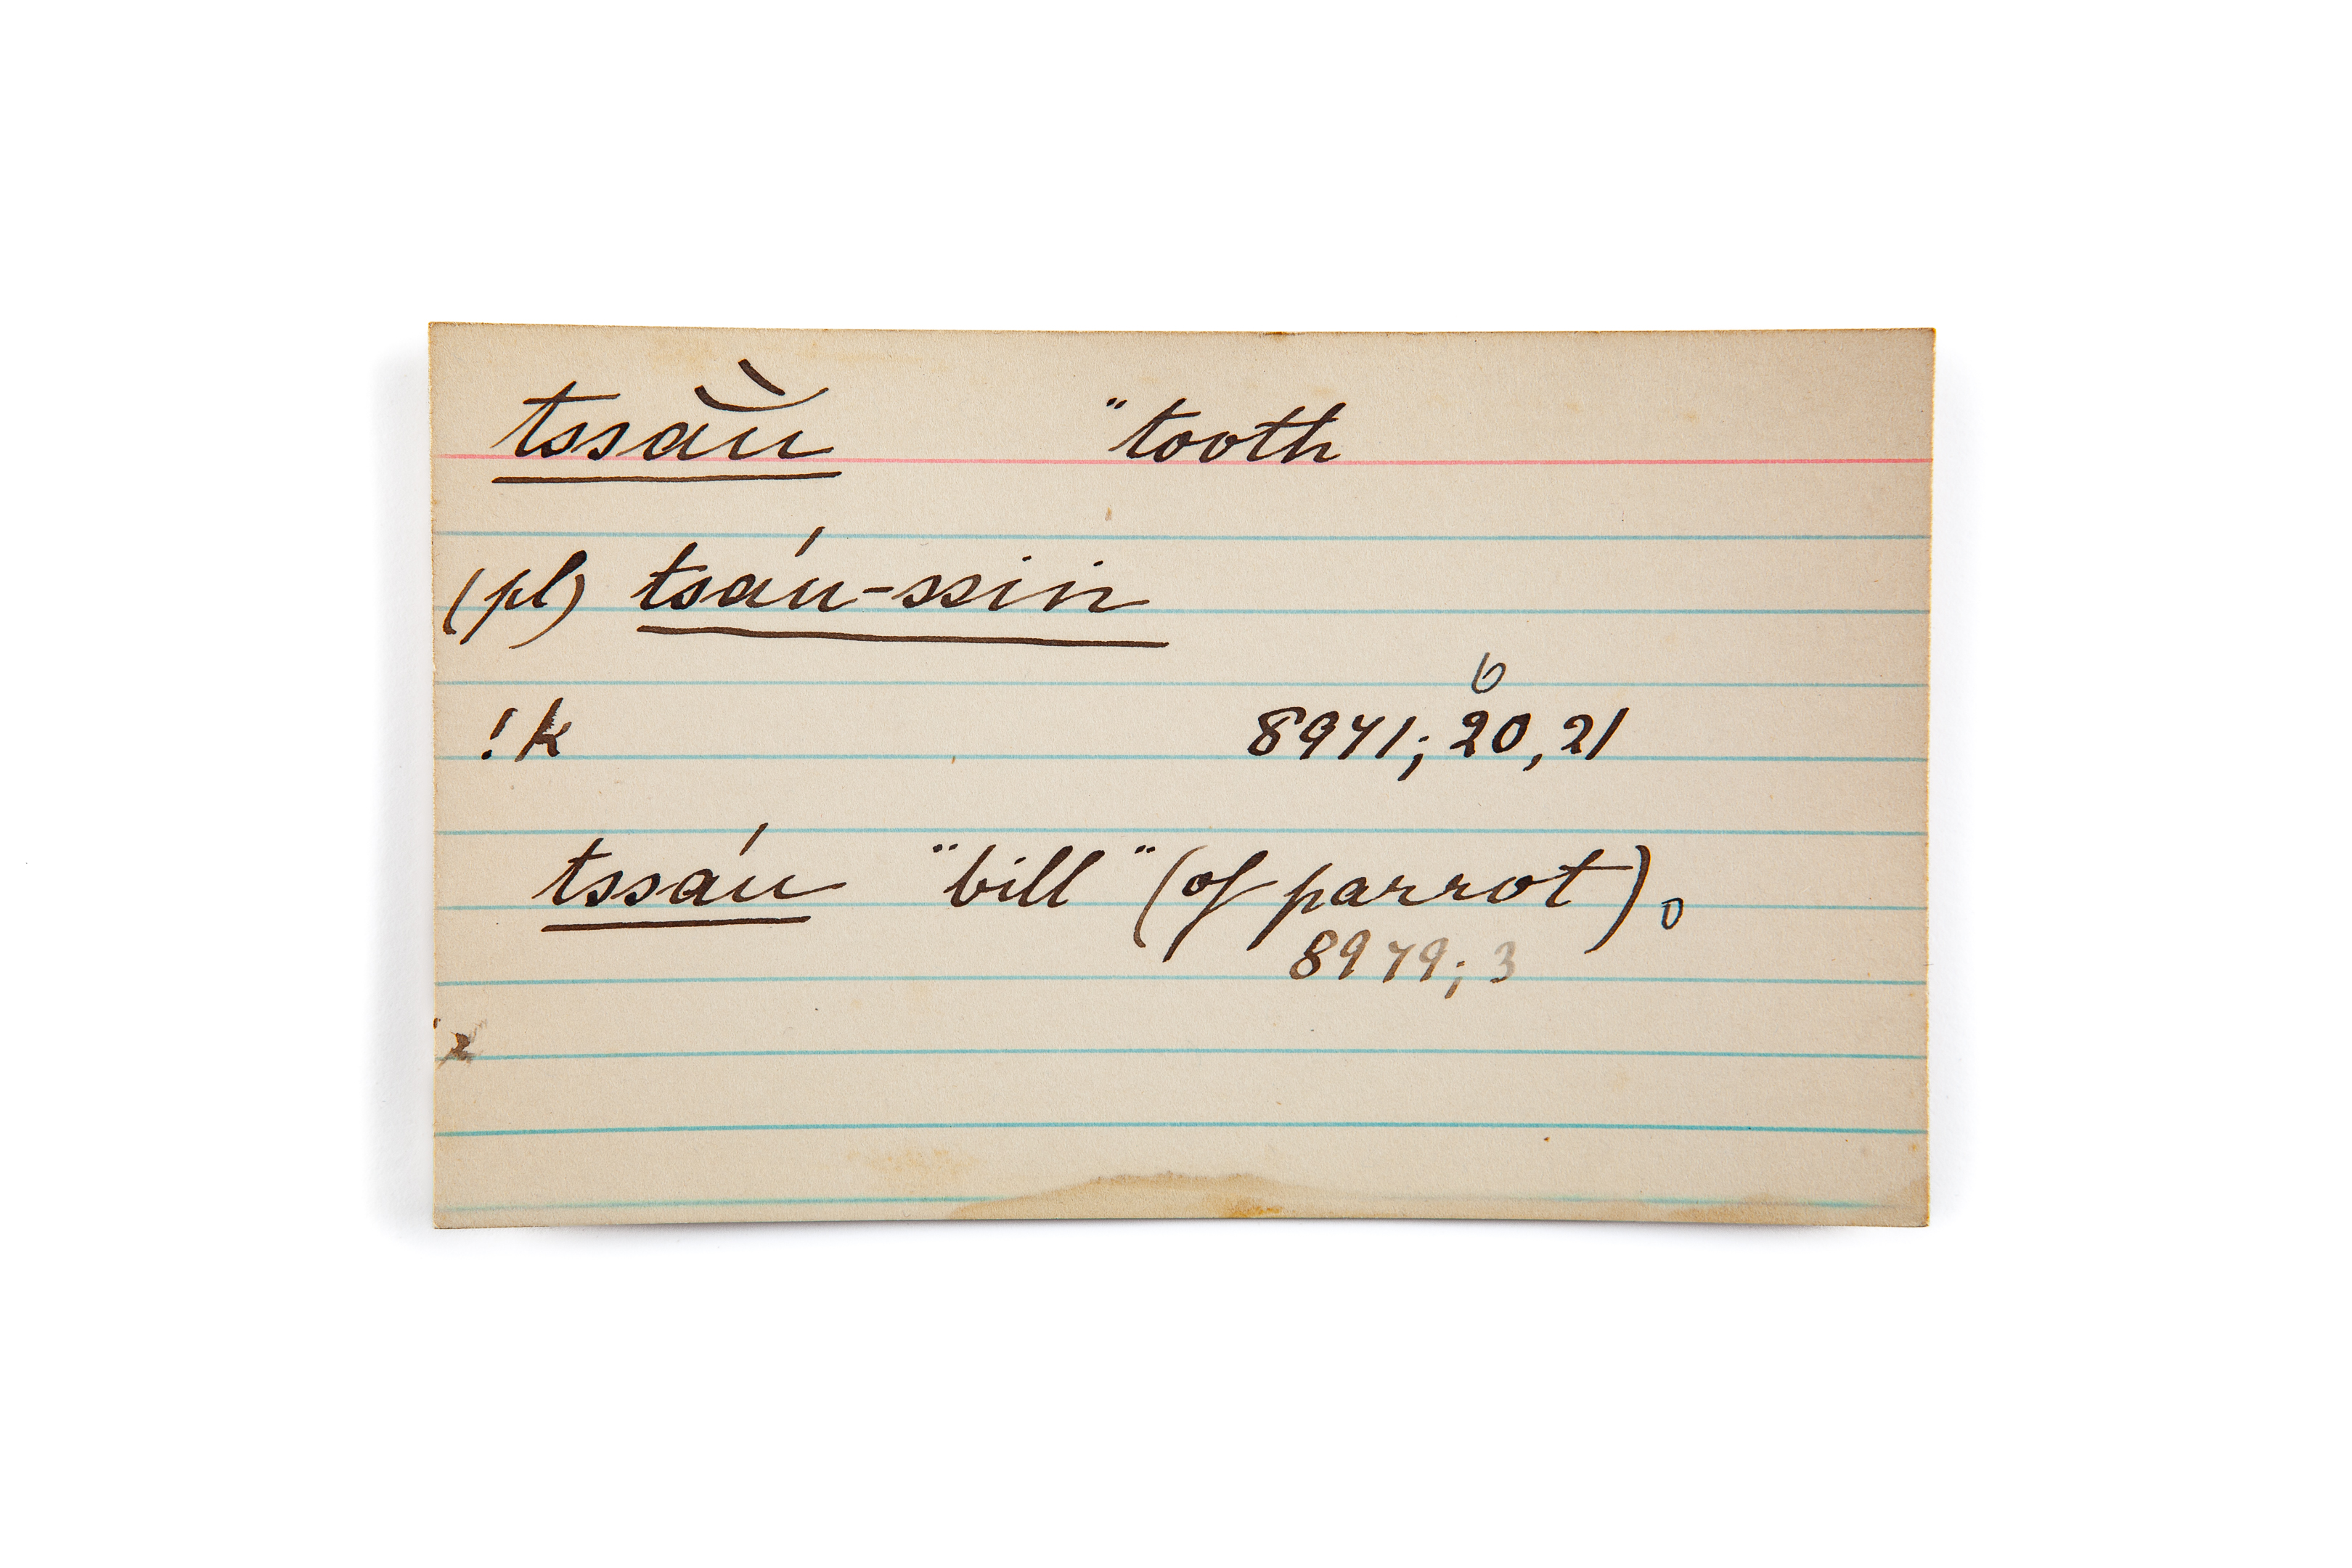 tssău̖ "tooth
(pl) tsáu-ssin
6
!k 8971; 20, 21
tssáu "bill" (of parrot)。
8979; 3